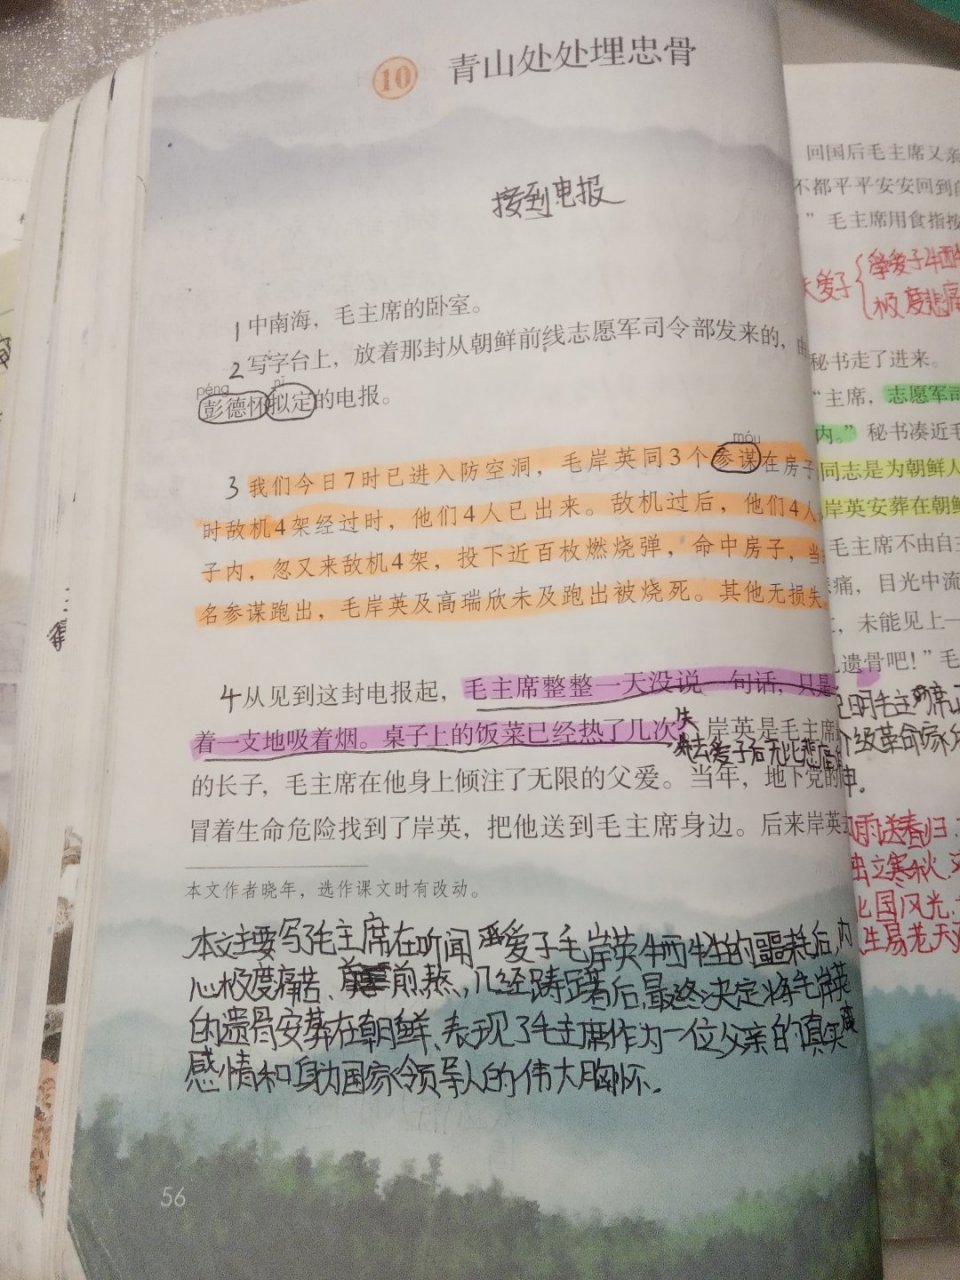 10 青山处处埋忠骨
接到电报
1 中南海，毛主席的卧室。
2 写字台上，放着那封从朝鲜前线志愿军司令部发来的，
péng nǐ
彭德怀拟定的电报。
móu
3 我们今日7时已进入防空洞，毛岸英同3个参谋在房子
时敌机4架经过时，他们4人已出来。敌机过后，他们4人
子内，忽又来敌机4架，投下近百枚燃烧弹，命中房子，当
名参谋跑出，毛岸英及高瑞欣未及跑出被烧死。其他无损失
4 从见到这封电报起，毛主席整整一天没说一句话，只是
着一支地吸着烟。桌子上的饭菜已经热了几次 岸英是毛主席
失去爱子后无比悲痛
的长子，毛主席在他身上倾注了无限的父爱。当年，地下党的
冒着生命危险找到了岸英，把他送到毛主席身边。后来岸英
本文作者晓年，选作课文时有改动。
本文主要写了毛主席在听闻爱子毛岸英牺牲的噩耗后，内
心极度痛苦、煎熬，几经踌躇后最终决定将毛岸英
的遗骨安葬在朝鲜，表现了毛主席作为一位父亲的真实
感情和身为国家领导人的伟大胸怀。
56
回国后毛主席又亲
不都平平安安回到
”毛主席用食指按
爱子
极度悲痛
秘书走了进来。
“主席，志愿军司
内。”秘书凑近毛
同志是为朝鲜人
岸英安葬在朝鲜
毛主席不由自主
痛，目光中流
，未能见上一
遗骨吧！”毛
明毛主席
级革命家
雨送春归
独立寒秋
北国风光
人生易老天